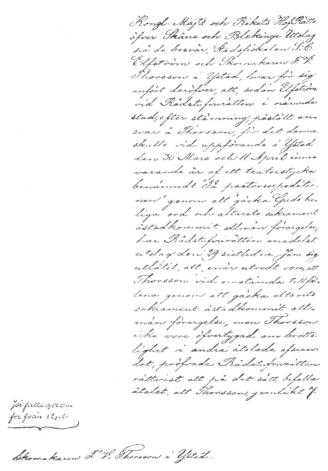 Kongl. Maj:ts och Rikets HofRätts
öfver Skåne och Blekinge Utslag
på de besvär, Stadsfiskalen S. C.
Elfström och Skomakaren F. V.
Thorsson i Ystad, hvar för sig
anfört deröfver att, sedan Elfström
vid Rådstufvurätten i nämnde
stad, efter stämning, påstått an-
svar å Thorsson, för det denne
skulle vid uppförande i Ystad
den 30 Mars och 11 April inne-
varande år af ett teaterstycke
benämndt "På pastorsexpeditio-
nen" genom att gäcka Guds he-
liga ord och altarets sakrament
åstadkommit allmän förargelse,
har Rådstufvurätten medelst
utslag den 29 sistledne Juni sig
utlåtit, att, enär utredt vore, att
Thorsson vid omstånda tillfäl-
lena genom att gäcka altarets
sakrament åstadkommit all-
män förargelse, men Thorsson
icke vore öfvertygad om brotts-
lighet i andra åtalade afseen-
det, pröfvade Rådstufvurätten
rättvist att på det sätt bifalla
åtalet, att Thorsson, jemlikt 7.
för från
Skomakaren F. V. Thorsson i Ystad.